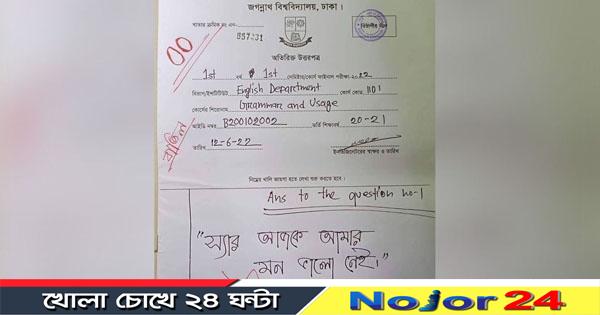 জগন্নাথ বিশ্ববিদ্যালয়, ঢাকা।
খাতার ক্রমিক নং এন-
557231
00
অতিরিক্ত উত্তরপত্র
1st বর্ষ 1st সেমিস্টার/কোর্স ফাইনাল পরীক্ষা-২০22
বিভাগ/ইনস্টিটিউট English Department কোর্স কোড: 1101
কোর্সের শিরোনাম Grammar and Usage
আইডি নম্বর B200102002 ভর্তি শিক্ষাবর্ষ 20-21
বাতিল
তারিখ 12-6-22
ইনভিজিলেটরের স্বাক্ষর ও তারিখ
নিম্নের খালি জায়গা হতে লেখা শুরু করতে হবে।
Ans to the question no-1
"স্যার আজকে আমার
মন ভালো নেই।"
খোলা চোখে ২৪ ঘন্টা
Nojor 24